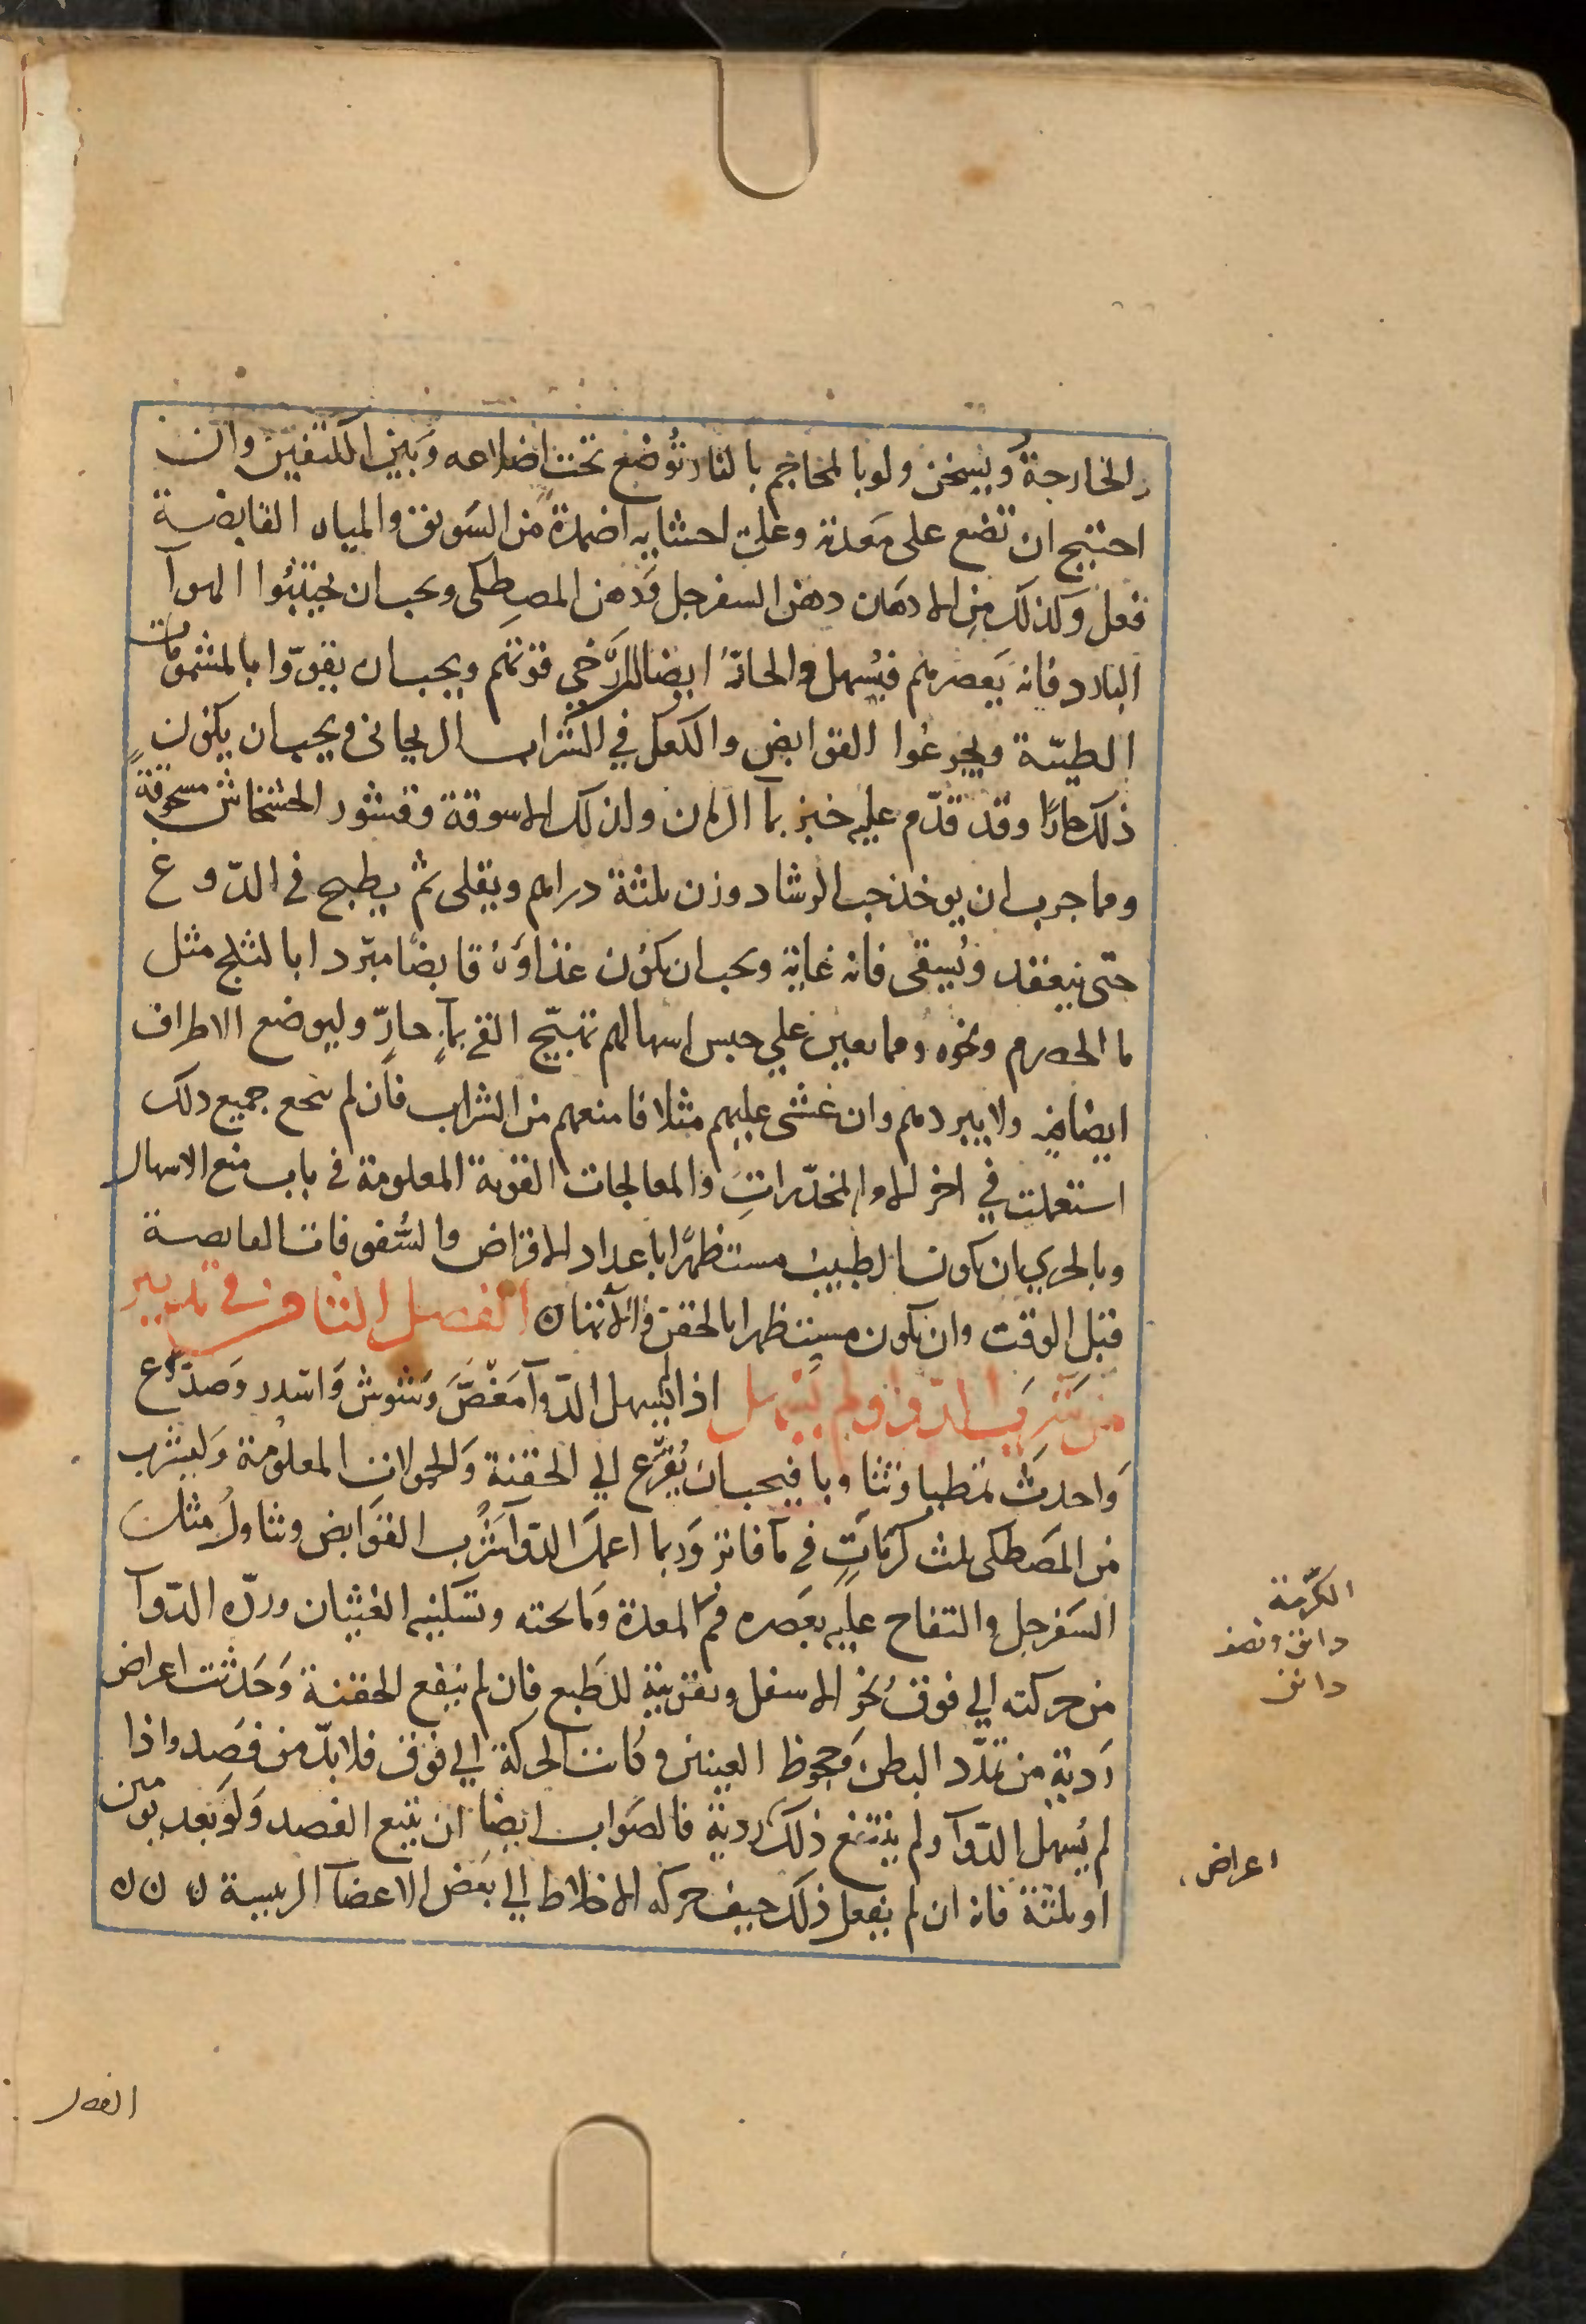 الخارجة ويسخن ولو بالمحاجم بالنار تُوضع تحت اضلاعه وَبَين الكتفين وان
احتيج ان تضع على مَعدته وعلى احشايه اضمدةً من السَويق والمياه القابضة
فعل وكذلك مِن الادهَان دهن السفرجل وَدهن المصطكى ويجب ان يجتنبُوا الهوآ
البارد فانه يَعصرهم فيُسهل والحارّ ايضا يُرخي قوتهم ويجب ان يقوّوا بالمشمومات
الطيبّة ويجرعُوا القوابض والكعك في الشراب الريحانى ويجب ان يكون
ذلك حارًا وقد قدّم عليه خبز بمآ الرمان وكذلك الاسوقة وقشور الخشخاش مسحوقة
ومما جرب ان يوخذ حب الرشاد وزن ثلثة دراهم ويقلى ثم يطبخ في الدّوغ
حتى ينعقد ويُسقى فانه غاية ويجب ان يكون غذاؤه قابضًا مبرّدا بالثلج مثل
ما الحصرم ونحوه ومما يعين علي حبس اسهالهم تهيّج القي بمآءٍ حارٍّ وليوضع الاطراف
ايضا فيه ولا يبردهم وان غشى عليهم مثلا فامنعهم من الشراب فان لم ينجع جميع ذلك
استعملت في اخر الامر المخدّراتِ والمعالجات القوية المعلومة في باب منع الاسهال
وبالحري ان يكون الطبيب مستظهرًا باعداد الاقراض والسُفوفات القابضة
قبل الوقت وان يكون مستظهرا بالحقن والاتها ن الفصل الثامن في تدبير
من شَرِبَ الدوآ ولم يُسهل اذا لم يُسهل الدّوآ مَغَصَّ وَشوش وَاسدر وَصدّع
وَاحدث تمَطيا وتثاوبا فيجب ان يُفزَع الي الحقنة وَالحمولات المعلوُمة وَليشرب
من المَصطكى ثلث كرمَاتٍ في مآ فاتر وَربما اعمل الدّوآ شُرب القوَابض وتناولُ مثل
السَفرجل والتفاح عليه بعَصره فم المعدة وَما تحته وتسكينه الغثيان وردّه الدّوآ
من حركته الي فوق نحَو الاسفل وتقويته للطَبع فان لم ينفع الحقنة وَحَدثت اعراض
رَدية من تمدّد البطن وَجحوظ العينين وكانت الحركة الي فوق فلا بدّ من فصَد واذا
لم يُسهل الدّوآ ولم يتبع ذلك ردية فالصَواب ايضا ان يتبع الفصد وَلوَ بَعد يومين
او ثلثة فانه ان لم يفعل ذلك خيف حركه الاخلاط الي بعَض الاعضآ الرييسة ن ن ن
الكرّمة
دانق ونصف
دانق
اعراض
الفصل